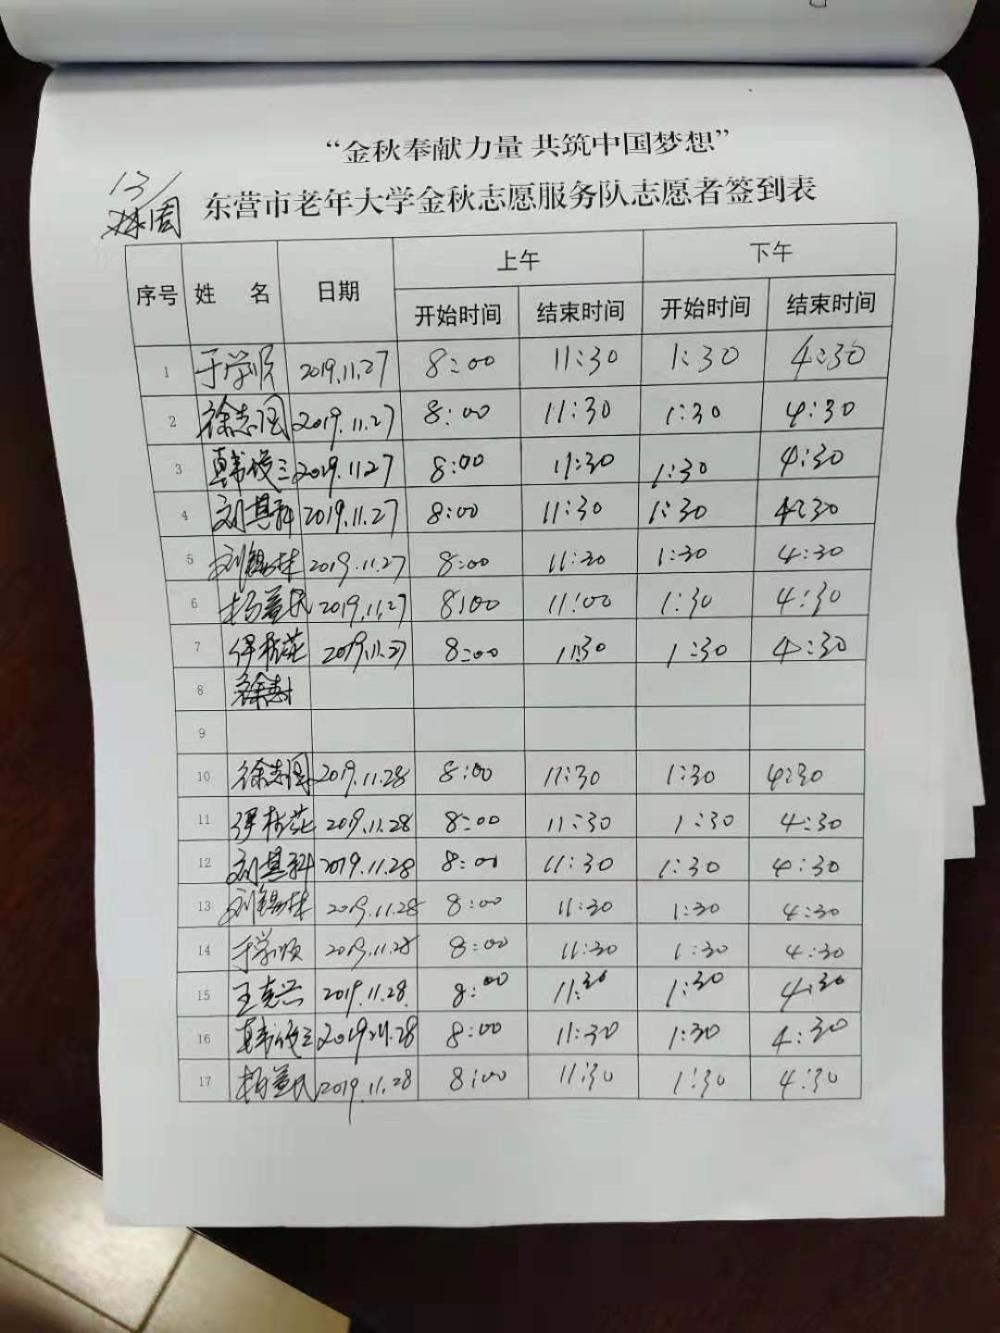 “金秋奉献力量 共筑中国梦想”
13/
周
东营市老年大学金秋志愿服务队志愿者签到表
序号 姓 名 日期 上午 下午
开始时间 结束时间 开始时间 结束时间
1 于学顺 2019.11.27 8:00 11:30 1:30 4:30
2 徐志国 2019.11.27 8:00 11:30 1:30 4:30
3 韩俊三 2019.11.27 8:00 11:30 1:30 4:30
4 刘其科 2019.11.27 8:00 11:30 1:30 4:30
5 刘锡林 2019.11.27 8:00 11:30 1:30 4:30
6 杨益民 2019.11.27 8:00 11:00 1:30 4:30
7 2019.11.27 8:00 11:30 1:30 4:30
8
9
10 徐志国 2019.11.28 8:00 11:30 1:30 4:30
11 2019.11.28 8:00 11:30 1:30 4:30
12 刘其科 2019.11.28 8:00 11:30 1:30 4:30
13 刘锡林 2019.11.28 8:00 11:30 1:30 4:30
14 于学顺 2019.11.28 8:00 11:30 1:30 4:30
15 王克兴 2019.11.28 8:00 11:30 1:30 4:30
16 韩俊三 2019.11.28 8:00 11:30 1:30 4:30
17 杨益民 2019.11.28 8:00 11:30 1:30 4:30